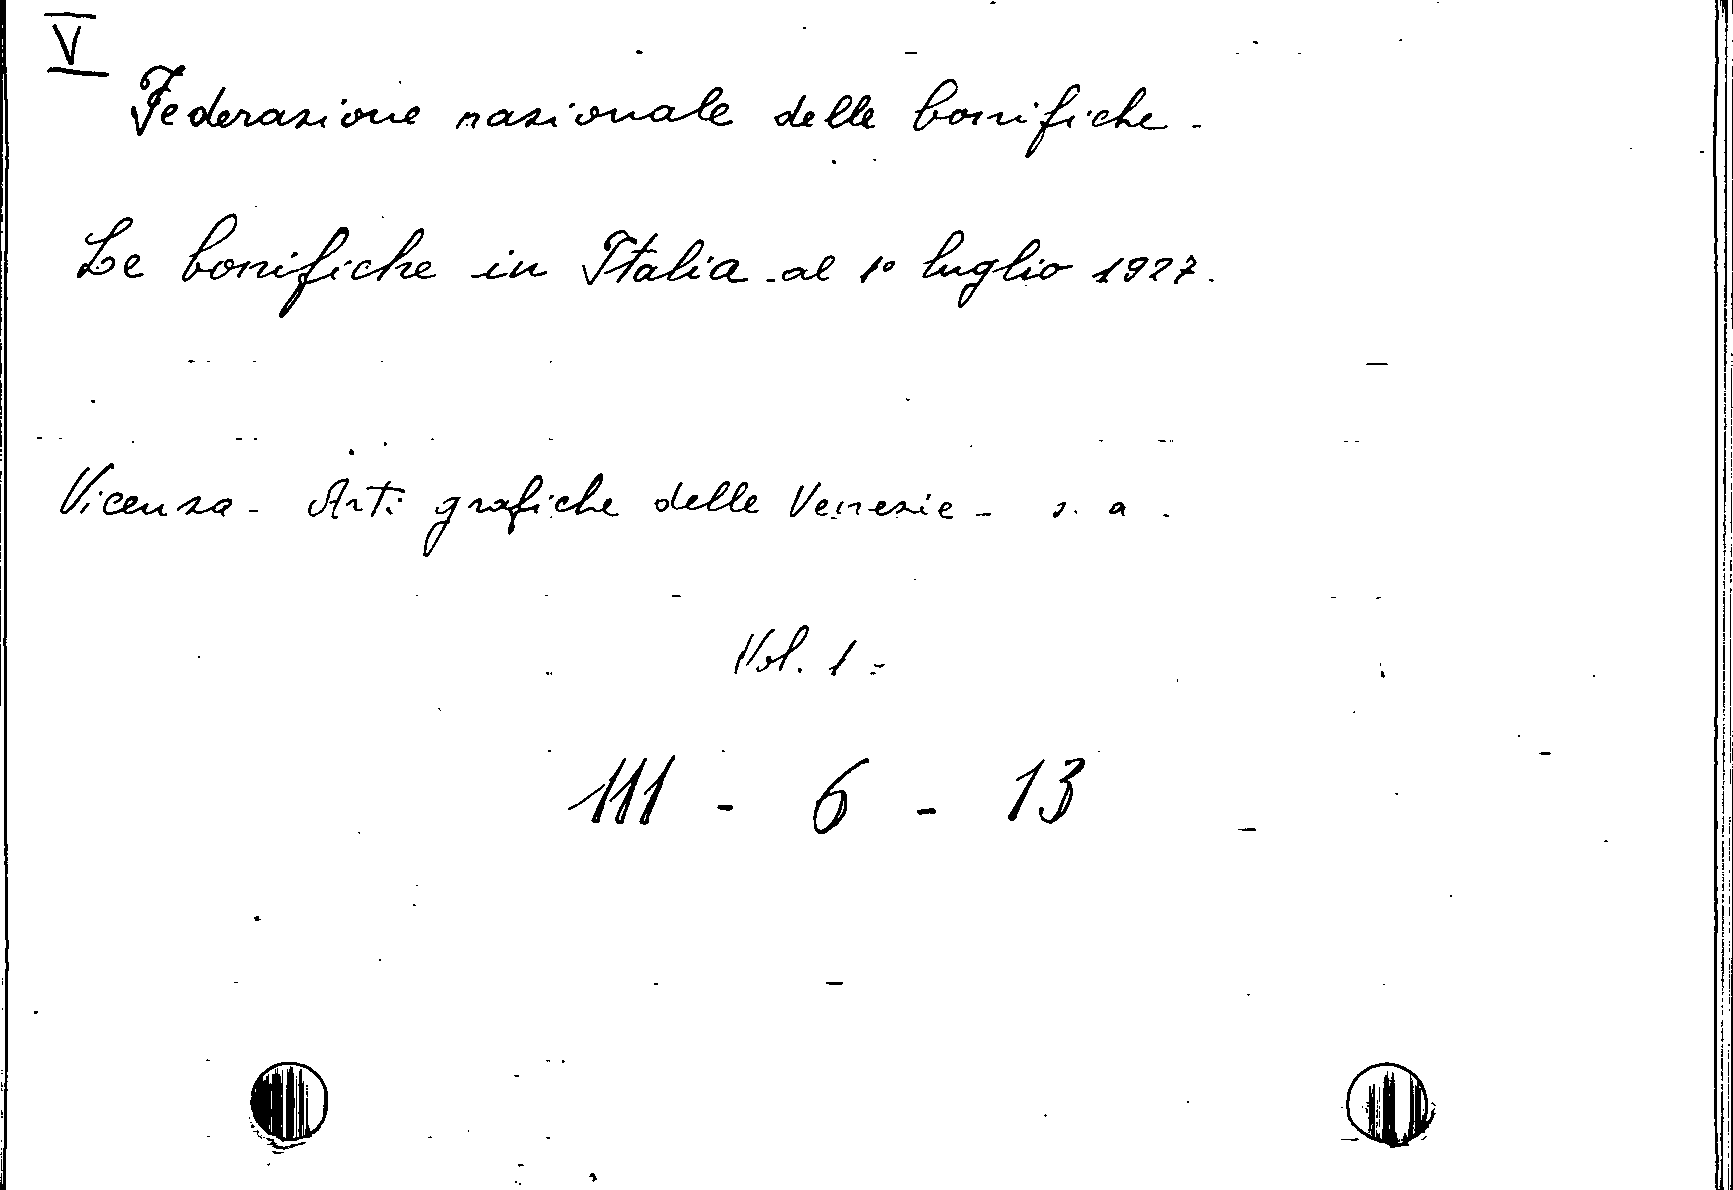 V
Federazione nazionale delle bonifiche.
Le bonifiche in Italia al 1° luglio 1927.
Vicenza - Arti grafiche delle Venezie - s. a.
Vol. 1 =
111 - 6 - 13